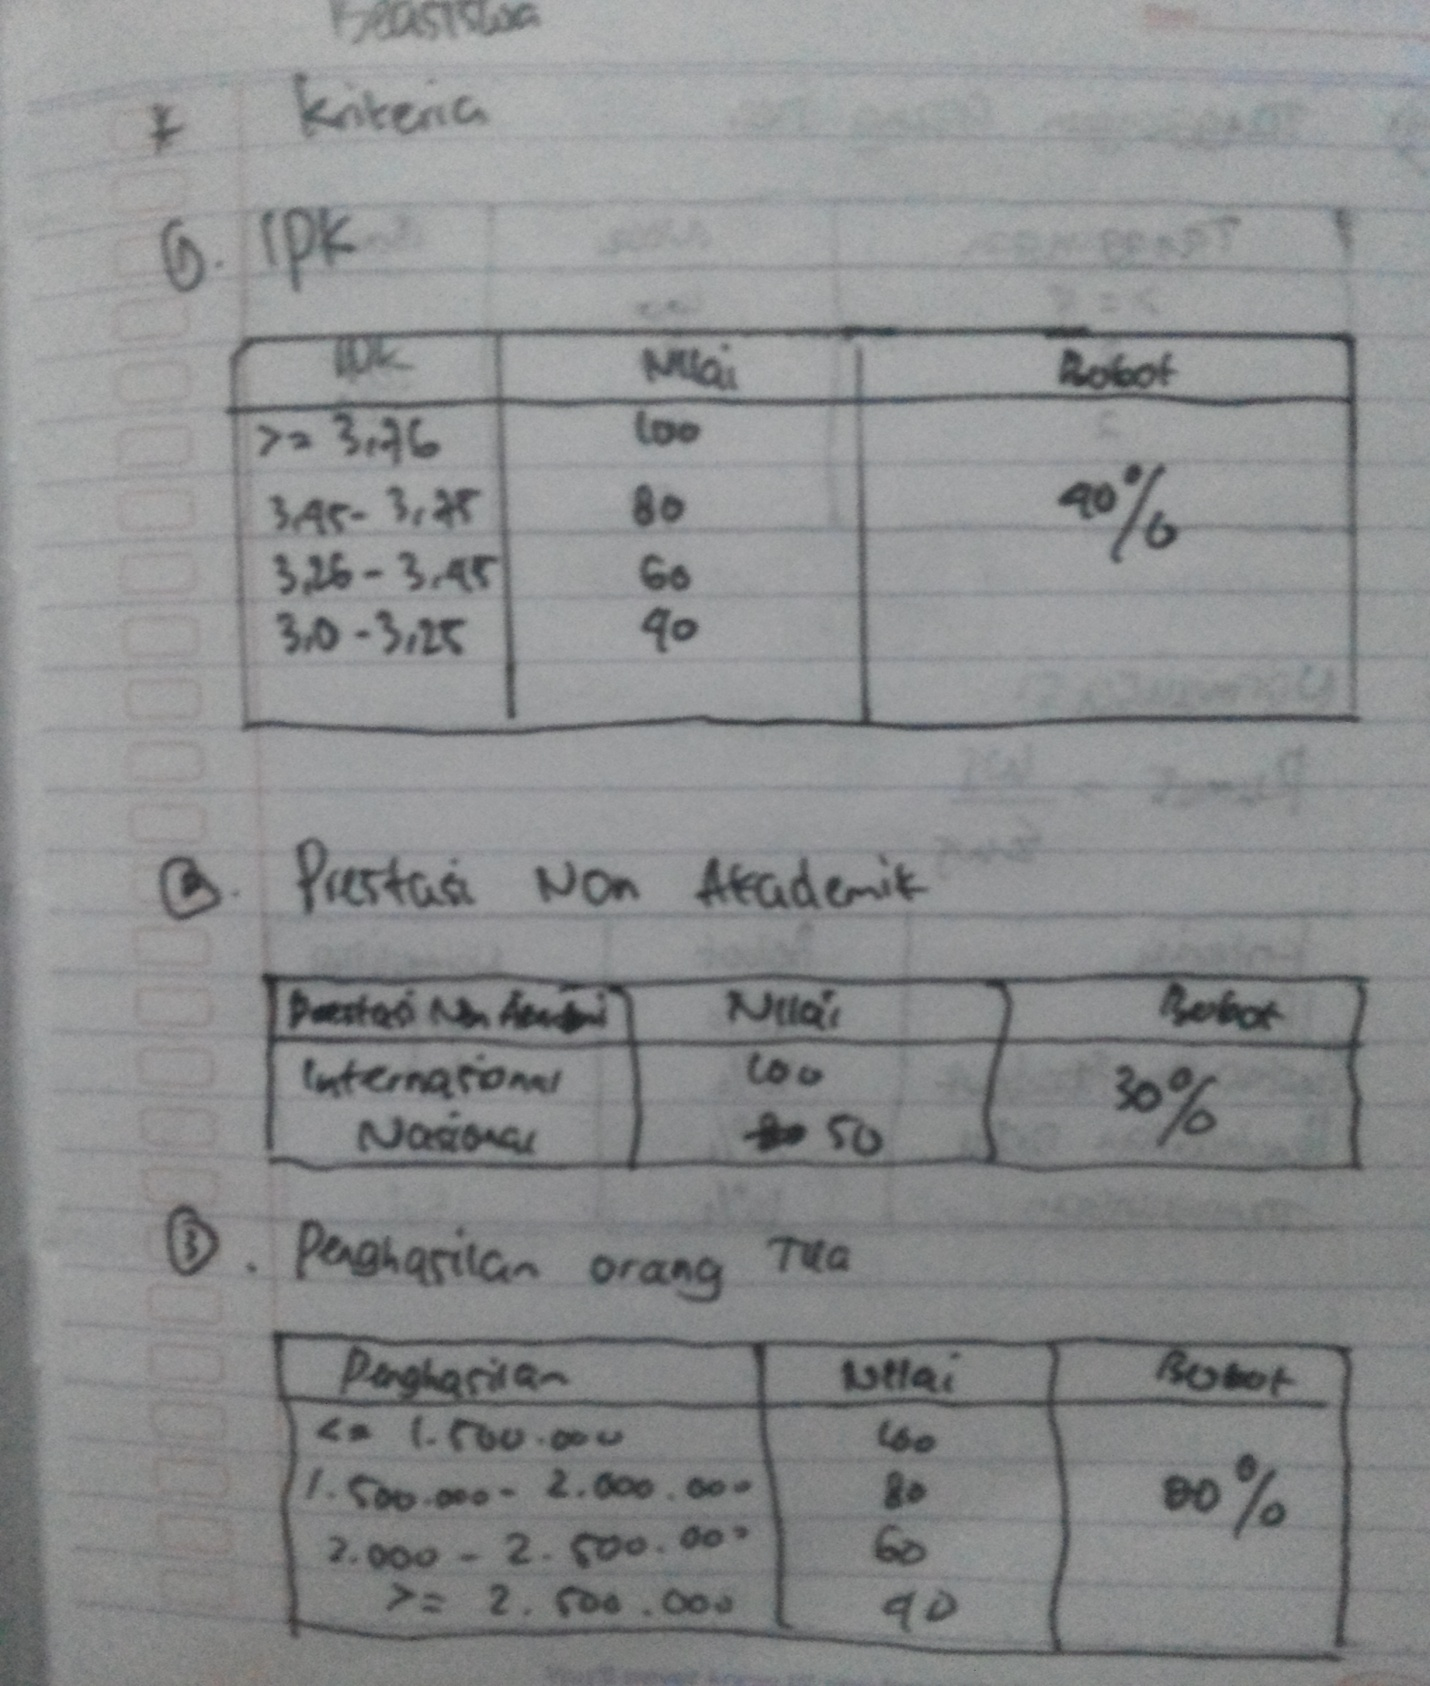 Beasiswa
* Kriteria
1. IPK
IPK Nilai Bobot
>= 3,76 100
3,45 - 3,75 80 40%
3,26 - 3,45 60
3,0 - 3,25 40
2. Prestasi Non Akademik
Prestasi Non Nilai Bobot
Internasional 100 30%
Nasional 50
3. Penghasilan orang Tua
Penghasilan Nilai Bobot
<= 1.500.000 100
1.500.000 - 2.000.000 80
2.000 - 2.500.000 60
>= 2.500.000 40